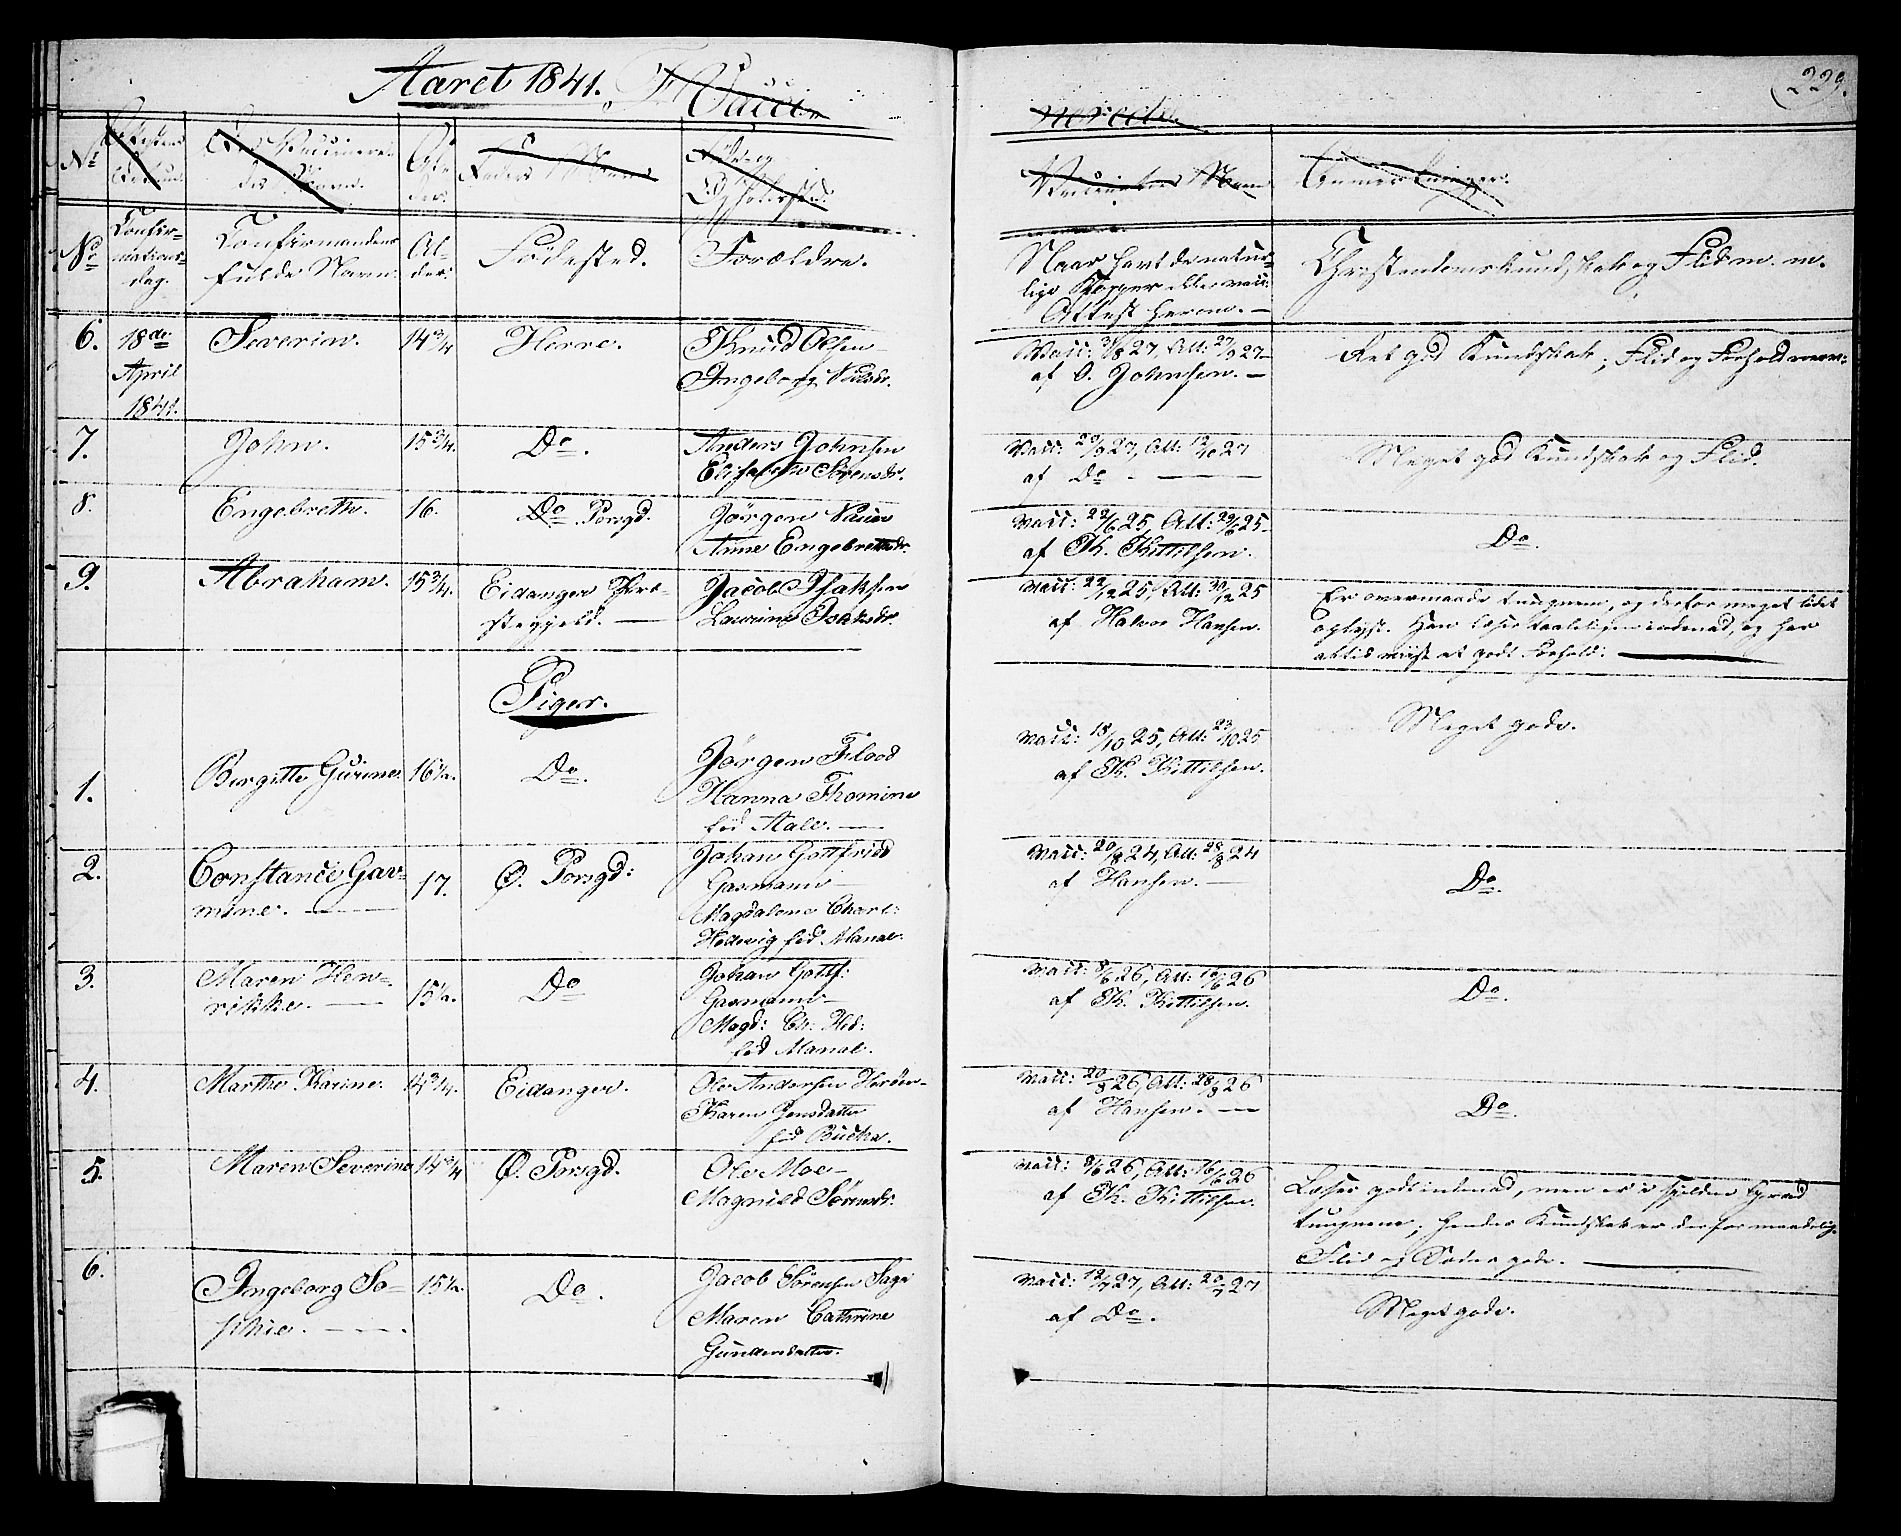 Aaret 1841.
229.
No
Confir-
mations-
dag.
Confirmandens
fulde Navn.
Al-
der.
Fødested.
Forældre.
Naar havt de natur-
lige Kopper eller vacc:
Attest herom. —
Christendomskundskab og Flid m. m.
6.
18de
April
1841.
Severin.
14 3/4
Herre.
Knud Olsen
Ingeborg Nilsdr.
Vacc: 31/8 27, Att: 27/9 27 —
af O. Johnsen. —
Ret god Kundskab, Flid og Forhold
7.
John.
15 3/4.
Do.
Anders Johnsen
Elisabeth Sørensdr.
Vacc: 20/9 27, Att: 12/10 27
af Do —
Meget god Kundskab og Flid.
8.
Engebreth.
16.
Do Porsgd.
Jørgen
Anne Engebrethsdr.
Vacc: 22/6 25, Att: 29/6 25 —
af K. Kittilsen.
Do.
9.
Abraham.
15 3/4.
Eidanger Præ-
stegjeld. —
Jacob Isaksen
Laurine Isaksdr.
Vacc: 22/12 25, Att: 30/12 25
af Halvor Hansen.
Er overmaade tungnem, og derfor meget lidet
oplyst. Han læser taaleligen indenad, og har
altid viist et godt Forhold. —
Piger.
1.
Birgitte Gurine.
16 1/2.
Do.
Jørgen Flood
Hanna Thomine
fød Aall. —
Vacc: 18/10 25, Att: 23/10 25
af K. Kittilsen.
Meget gode.
2.
Constance Gav-
mine. —
17.
Ø. Porsgd:
Johan Gottfried
Gasmann —
Magdalene Charl:
Hedevig fød
Vacc: 20/8 24, Att: 28/8 24
af Hansen. —
Do.
3.
Maren Hen-
rikke. —
15 1/2.
Do
Johan Gottf:
Gasmann —
Magd: Ch: Hed:
fød
Vacc: 9/6 26, Att: 16/6 26
af K. Kittilsen.
Do.
4.
Marthe Karine.
14 3/4.
Eidanger.
Ole Andersen
Karen Jensdatter
fød
Vacc: 20/8 26, Att: 28/8 26
af Hansen. —
Do.
5.
Maren Severine
14 3/4
Ø. Porsgd.
Ole Moe —
Magnild Sørensdr.
Vacc: 9/6 26, Att: 16/6 26
af K. Kittilsen.
Læser godt indenad, men er i sjelden Grad
tungnem; hendes Kundskab er derfor maadelig.
Flid og Sæder gode. —
6.
Ingeborg So-
phie. —
15 1/2.
Do.
Jacob Sørensen
Maren Cathrine
Gundersdatter.
Vacc: 12/7 27, Att: 20/7 27
af Do.
Meget gode.